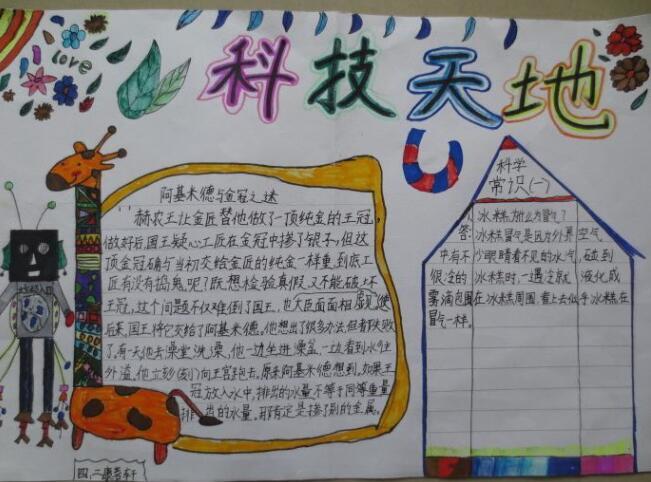 科技天地
love
阿基米德与金冠之迷
赫农王让金匠替他做了一顶纯金的王冠,
做好后国王疑心工匠在金冠中掺了银子,但这
顶金冠确与当初交给金匠的纯金一样重到底工
匠有没有捣鬼呢?既想检验真假又不能破坏
王冠,这个问题不仅难倒了国王,也大臣面面相觑
后来,国王将它交给了阿基米德。他想出了很多办法,但都失败
了,有一天他去澡堂洗澡,他一边坐进澡盆,一边看到水往
外溢,他立刻向王宫跑去。原来阿基米德想到,如果王
冠放入水中,排出的水量不等于同等重量
的水量。那肯定是掺了别的金属。
科学
常识(一)
冰糕为什么冒气?
答:冰糕冒气是因为外界空气
中有不少眼睛看不见的水气,碰到
很冷的冰糕时,一遇冷就液化成
雾滴包围在冰糕周围,看上去似乎冰糕在
冒气一样。
四、二